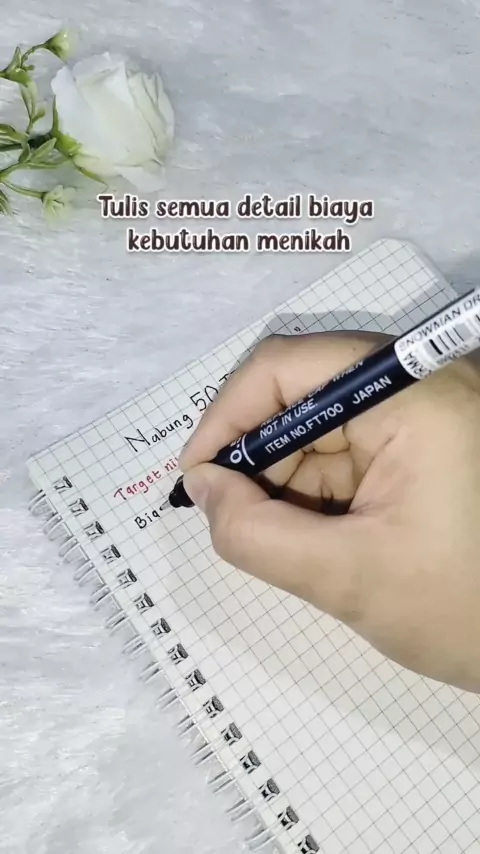 Tulis semua detail biaya
kebutuhan menikah
Nabung 50
Target
Bia
SNOWMAN
NOT IN USE.
ITEM NO.FT700 JAPAN